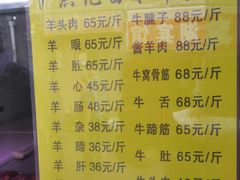 羊头肉 65元/斤 牛腱子 88元/斤
羊 眼 65元/斤 酱羊肉 88元/斤
羊 肚 65元/斤 牛窝骨筋
羊 心 45元/斤 68元/斤
羊 肠 48元/斤 牛 舌 68元/斤
羊 杂 38元/斤 牛蹄筋 65元/斤
羊 蹄 36元/斤 牛 肚 65元/斤
羊 肝 36元/斤